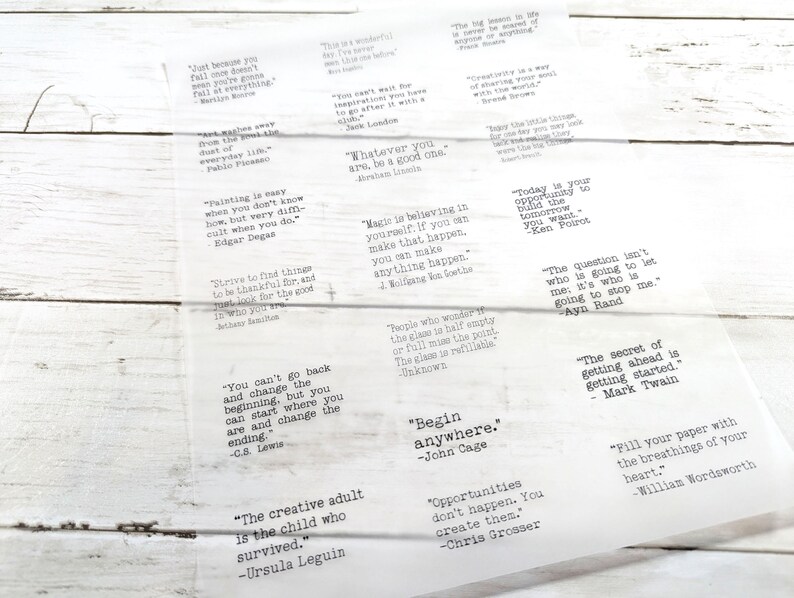 "Just because you
fail once doesn't
mean you're gonna
fail at everything."
- Marilyn Monroe
"Art washes away
from the soul the
dust of
everyday life."
- Pablo Picasso
"Painting is easy
when you don't know
how, but very diffi-
cult when you do."
- Edgar Degas
"Strive to find things
to be thankful for, and
just look for the good
in who you are."
-Bethany Hamilton
"You can't go back
and change the
beginning, but you
can start where you
are and change the
ending."
-C.S. Lewis
"The creative adult
is the child who
survived."
-Ursula Leguin
"This is a wonderful
day, I've never
seen this one before."
- Maya Angelou
"You can't wait for
inspiration; you have
to go after it with a
club."
- Jack London
"Whatever you
are, be a good one."
-Abraham Lincoln
"Magic is believing in
yourself. If you can
make that happen,
you can make
anything happen."
-J. Wolfgang Von Goethe
"People who wonder if
the glass is half empty
or full miss the point.
The glass is refillable."
-Unknown
"Begin
anywhere."
-John Cage
"Opportunities
don't happen. You
create them."
-Chris Grosser
"The big lesson in life
is never be scared of
anyone or anything."
- Frank Sinatra
"Creativity is a way
of sharing your soul
with the world."
- Brené Brown
"Enjoy the little things,
for one day you may look
back and realize they
were the big things"
-Robert Brault
"Today is your
opportunity to
build the
tomorrow
you want."
-Ken Poirot
"The question isn't
who is going to let
me; it's who is
going to stop me."
-Ayn Rand
"The secret of
getting ahead is
getting started."
- Mark Twain
"Fill your paper with
the breathings of your
heart."
-William Wordsworth